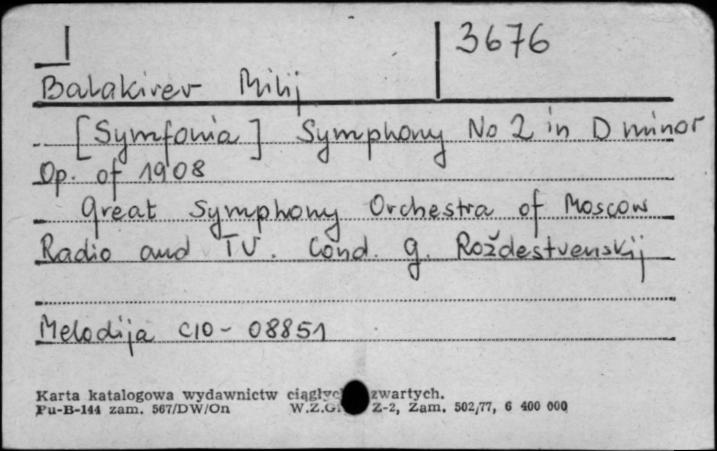 3676
Balakirev Milij
[Symfonia] Symphony No 2 in D minor
Op. of 1908
Great Symphony Orchestra of Moscow
Radio and TV. Cond. G. Roždestvenskij
Melodija C10 - 08851
Karta katalogowa wydawnictw ciągłyc zwartych.
Pu-B-144 zam. 567/DW/On W.Z.G Z-2, Zam. 502/77, 6 400 000